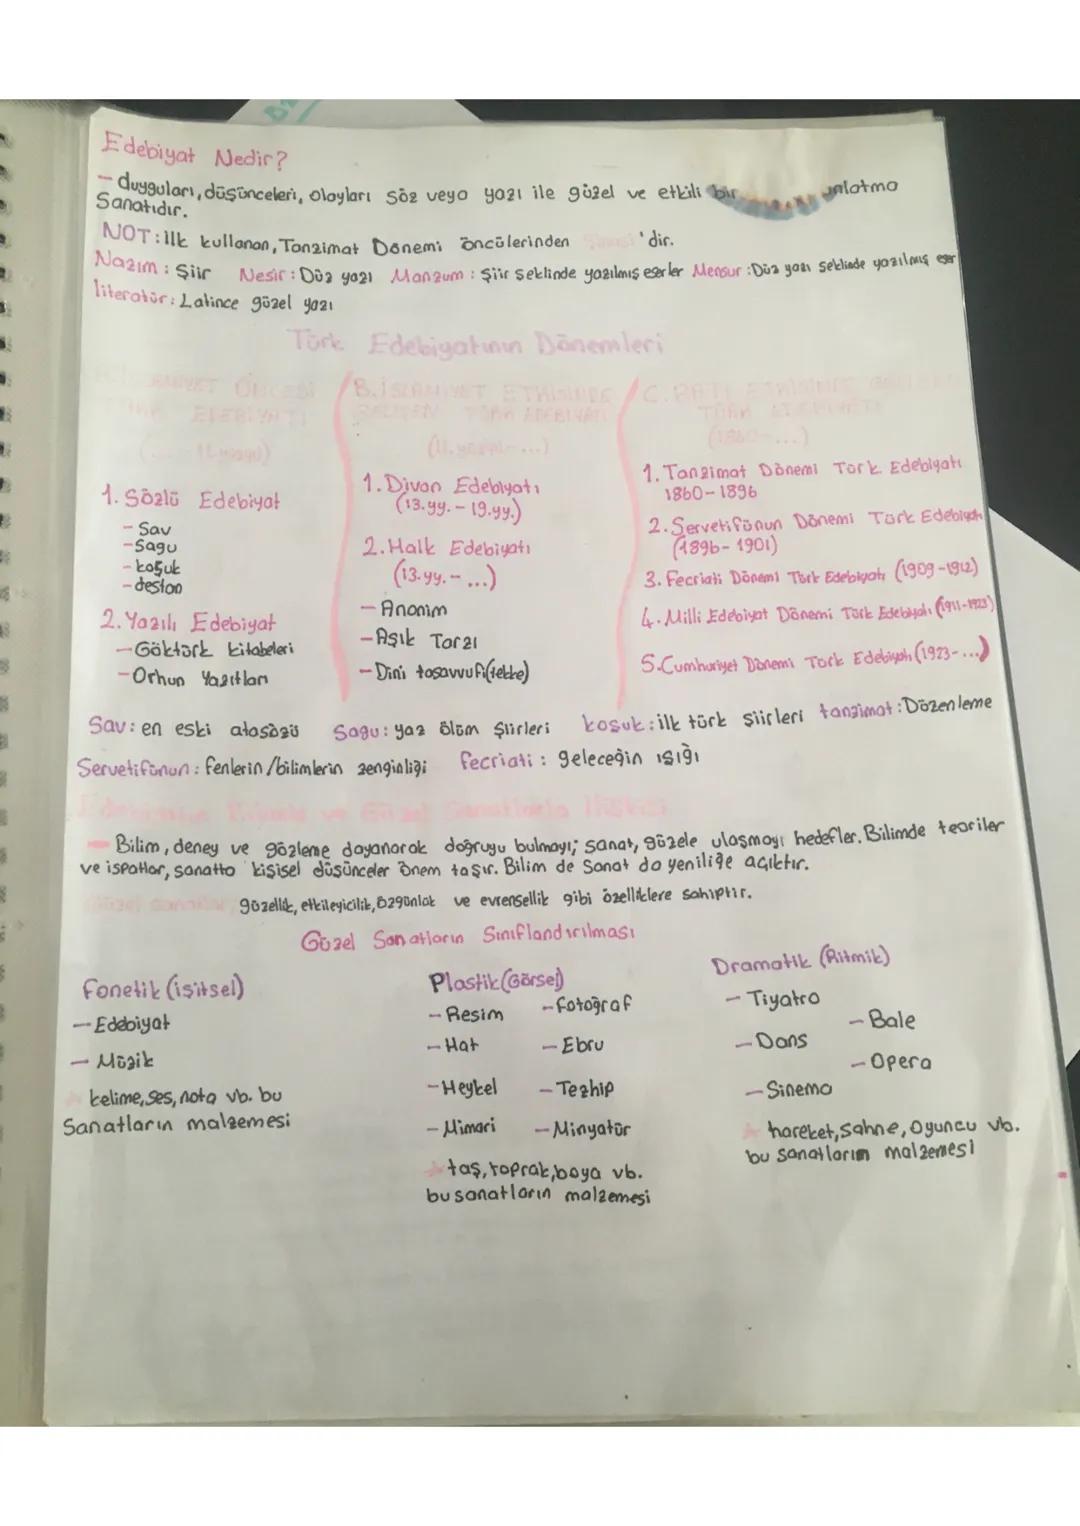 Edebiyat Nedir?
- duyguları, düşünceleri, olayları söz veya yazı ile güzel ve etkili bir anlatma
Sanatıdır.
NOT: ilk kullanan, Tanzimat Dönemi öncülerinden Şinasi'dir.
Nazım: Şiir Nesir: Düz yazı Manzum: Şiir şeklinde yazılmış eserler Mensur: Düz yazı şeklinde yazılmış eser
literatür: Latince güzel yazı
Türk Edebiyatının Dönemleri
ÖNCESİ
EDEBİYATI
B. İSLAMİYET ETKİSİNDE
GELİŞEN TÜRK EDEBİYATI
(11. yüzyıl-...)
C. BATI ETKİSİNDE GELİŞEN
TÜRK EDEBİYATI
(1860-...)
1. Sözlü Edebiyat
- Sav
- Sagu
- koşuk
- destan
2. Yazılı Edebiyat
- Göktürk kitabeleri
- Orhun Yazıtları
1. Divan Edebiyatı
(13.yy. - 19.yy.)
2. Halk Edebiyatı
(13.yy. - ...)
- Anonim
- Aşık Tarzı
- Dini tasavvufi (tekke)
1. Tanzimat Dönemi Türk Edebiyatı
1860-1896
2. Servetifünun Dönemi Türk Edebiyatı
(1896-1901)
3. Fecriati Dönemi Türk Edebiyatı (1909-1912)
4. Milli Edebiyat Dönemi Türk Edebiyatı (1911-1923)
5. Cumhuriyet Dönemi Türk Edebiyatı (1923-...)
Sav: en eski atasözü Sagu: yaz ölüm şiirleri koşuk: ilk türk şiirleri tanzimat: Düzenleme
Servetifünun: fenlerin/bilimlerin zenginliği fecriati: geleceğin ışığı
Edebiyatın Bilimle ve Güzel Sanatlarla İlişkisi
- Bilim, deney ve gözleme dayanarak doğruyu bulmayı; sanat, güzele ulaşmayı hedefler. Bilimde teoriler
ve ispatlar, sanatta kişisel düşünceler önem taşır. Bilim de Sanat da yeniliğe açıktır.
Güzel sanatlar, güzellik, etkileyicilik, özgünlük ve evrensellik gibi özelliklere sahiptir.
Güzel Sanatların Sınıflandırılması
Fonetik (işitsel)
- Edebiyat
- Müzik
kelime, ses, nota vb. bu
Sanatların malzemesi
Plastik (Görsel)
- Resim - fotoğraf
- Hat - Ebru
- Heykel - Tezhip
- Mimari - Minyatür
taş, toprak, boya vb.
bu sanatların malzemesi
Dramatik (Ritmik)
- Tiyatro
- Bale
- Dans
- Opera
- Sinema
hareket, sahne, oyuncu vb.
bu sanatların malzemesi